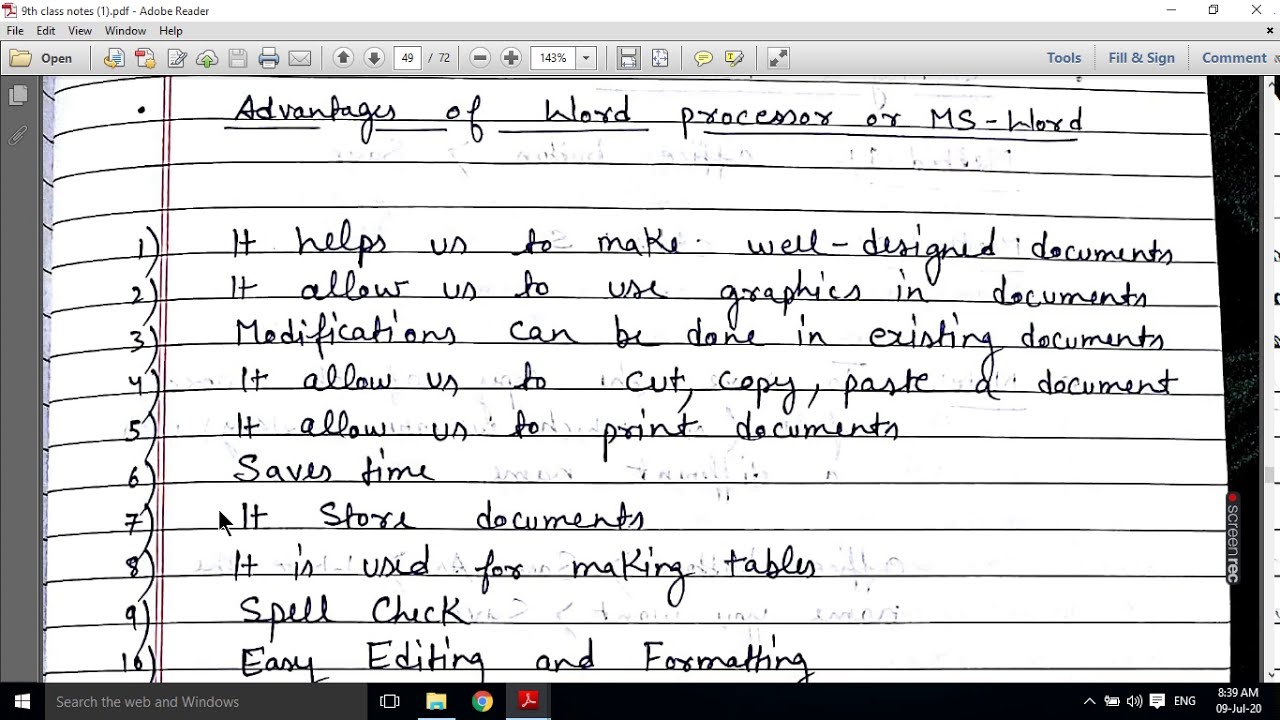 9th class notes (1).pdf - Adobe Reader
File Edit View Window Help
Open 49 / 72 143% Tools Fill & Sign Comment
Advantages of Word processor or MS-Word
1) It helps us to make well-designed documents
2) It allow us to use graphics in documents
3) Modifications can be done in existing documents
4) It allow us to cut, copy, paste a document
5) It allow us to print documents
6) Saves time
7) It Store documents
8) It is used for making tables
9) Spell Check
10) Easy Editing and Formatting
screenrec
Search the web and Windows
ENG
8:39 AM
09-Jul-20